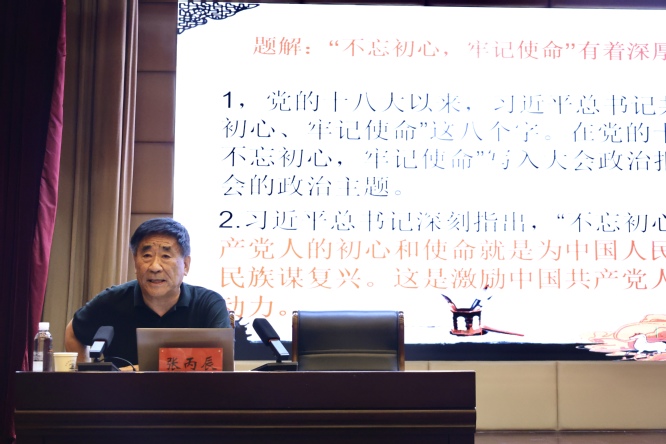 题解：“不忘初心，牢记使命”有着深厚
1，党的十八大以来，习近平总书记
初心、牢记使命”这八个字。在党的
不忘初心，牢记使命”写入大会政治
会的政治主题。
2.习近平总书记深刻指出，“不忘初心
产党人的初心和使命就是为中国人民
民族谋复兴。这是激励中国共产党人
动力。
张丙辰